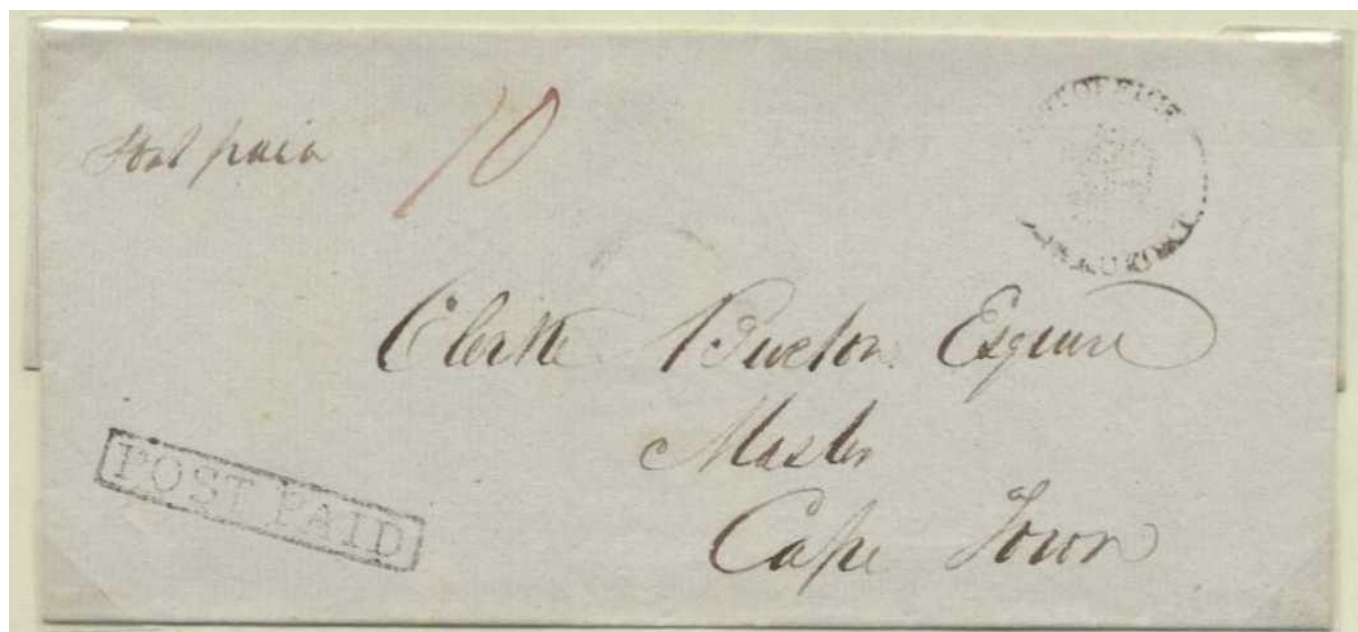 Post paid 10
POST OFFICE
Clerke Burton Esquire
Master
Cape Town
POST PAID